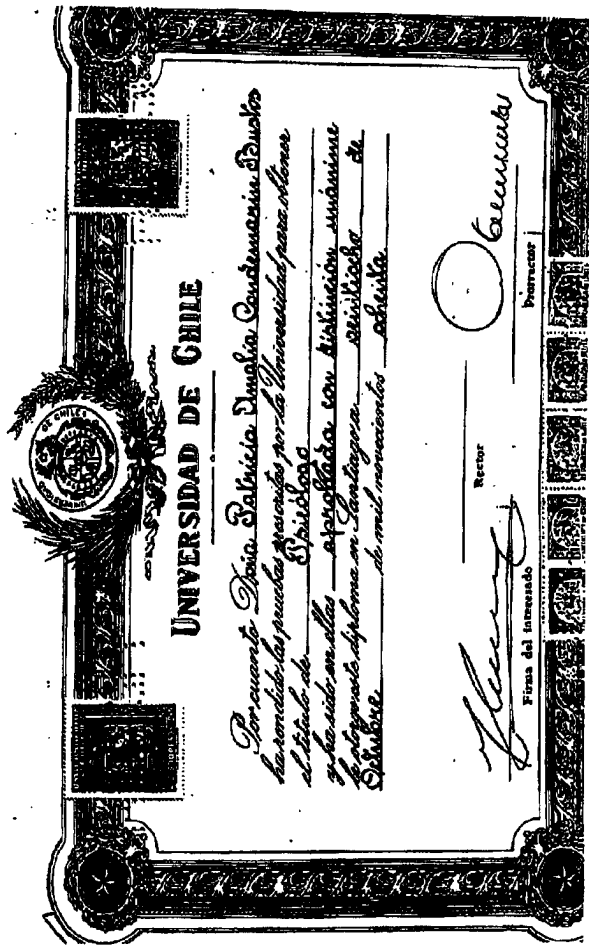 DE CHILE
UNIVERSIDAD DE CHILE
Por cuanto Doña Patricia Amalia Condemarin Bustos
ha rendido las pruebas prescritas por la Universidad para obtener
el título de Psicólogo
y ha sido en ellas aprobada con distinción unánime
le otorga este diploma en Santiago a veintiocho de
Octubre de mil novecientos ochenta
Rector
Firma del interesado
Prorrector